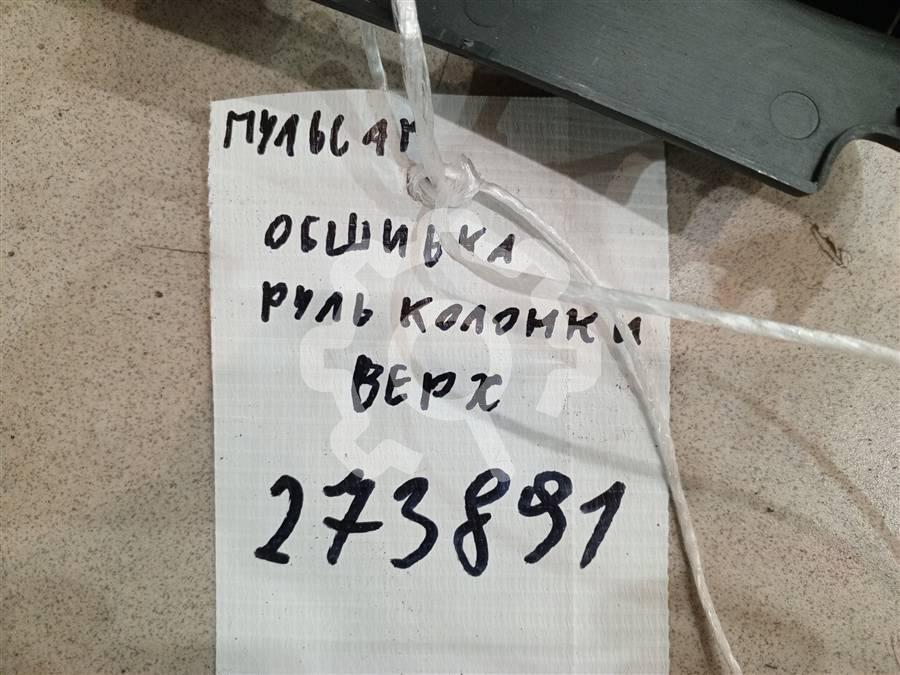 ПУЛЬСАР
ОБШИВКА
РУЛЬ КОЛОНКИ
ВЕРХ
273891